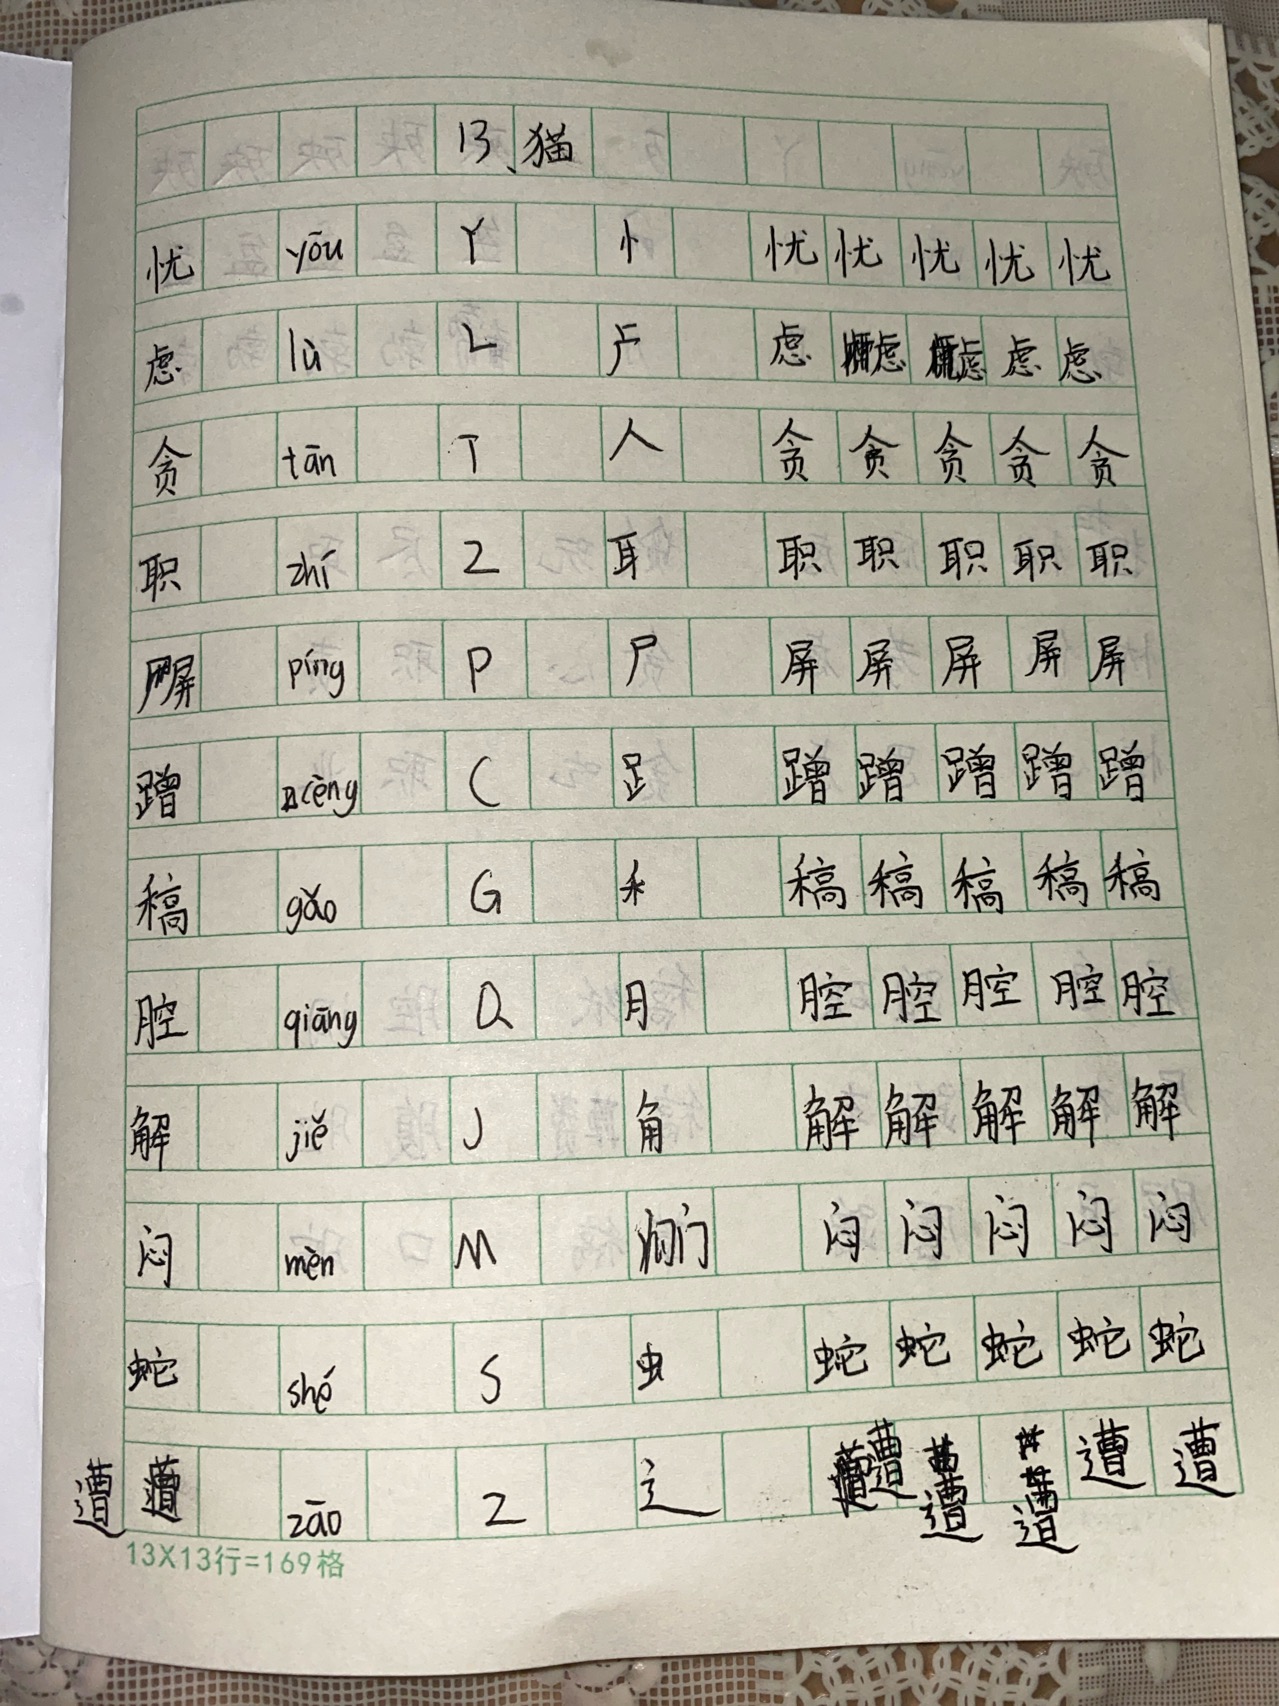 13、猫
忧 yōu Y 忄 忧 忧 忧 忧 忧
虑 lǜ L 虍 虑 虑 虑 虑 虑
贪 tān T 人 贪 贪 贪 贪 贪
职 zhí Z 耳 职 职 职 职 职
屏 píng P 尸 屏 屏 屏 屏 屏
蹭 cèng C 𧾷 蹭 蹭 蹭 蹭 蹭
稿 gǎo G 禾 稿 稿 稿 稿 稿
腔 qiāng Q 月 腔 腔 腔 腔 腔
解 jiě J 角 解 解 解 解 解
闷 mèn M 门 闷 闷 闷 闷 闷
蛇 shé S 虫 蛇 蛇 蛇 蛇 蛇
遭 zāo Z 辶 遭 遭 遭 遭 遭
13X13行=169格